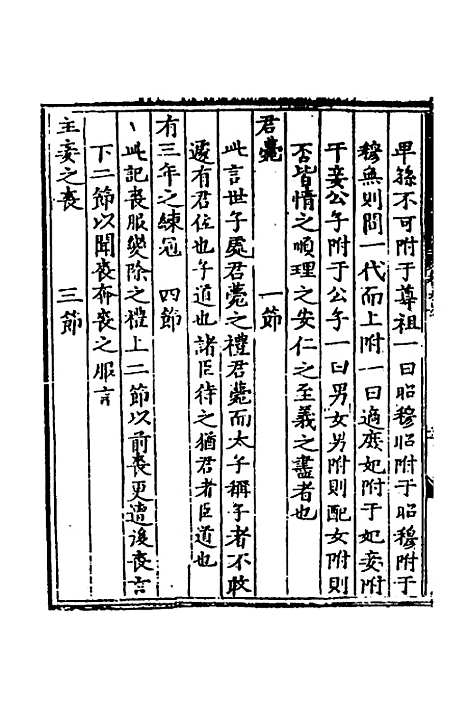 卑孫不可附于尊祖一曰昭穆昭附于昭穆附于
穆無則間一代而上附一曰適庶妃附于妃妾附
于妾公子附于公子一曰男女男附則配女附則
否皆情之順理之安仁之至義之盡者也
君薨　一節
此言世子處君薨之禮君薨而太子稱子者不敢
遽有君位也子道也諸臣待之猶君者臣道也
有三年之練冠　四節
此記喪服變除之禮上二節以前喪更遭後喪言
下二節以聞喪奔喪之服言
主妾之喪　三節